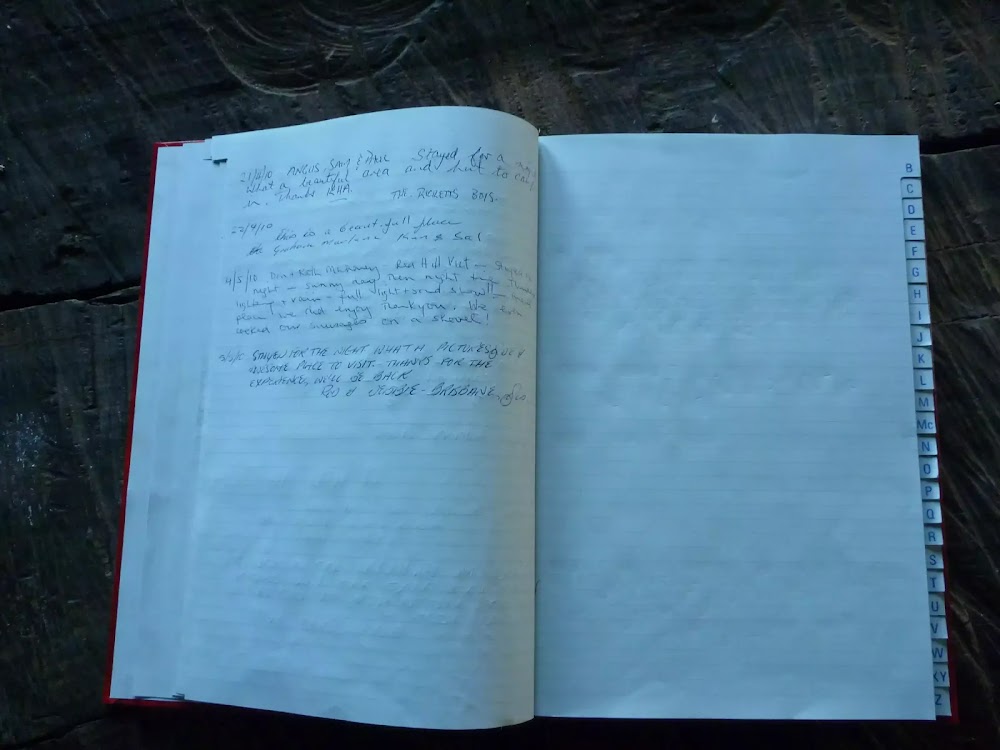 ANGUS SAM & Stayed for a
What a beautiful area and hut to camp
in. Thanks KHA. THE RICKETTS BOYS.
22/4/10 this is a beautifull place
Graham & Sal
4/5/10 Don & Red Hill Vict — Stayed
night — sunny day, then night
lightning & rain — full light & sound show!!
we did enjoy. Thankyou. We even
cooked our sausages on a shovel!
STAYED FOR THE NIGHT WHAT A PICTURESQUE &
AWESOME PLACE TO VISIT. THANKS FOR THE
EXPERIENCE, WE'LL BE BACK
& DEBBIE - BRISBANE
B
C
D
E
F
G
H
I
J
K
L
M
Mc
N
O
P
Q
R
S
T
U
V
W
XY
Z